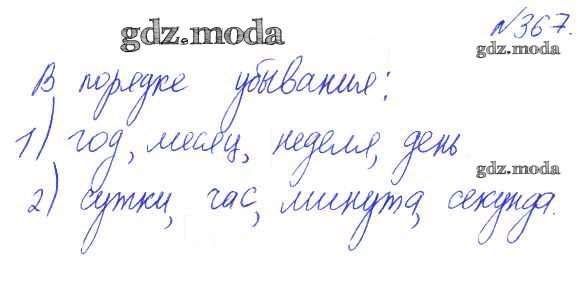 №367.
gdz.moda
gdz.moda
В порядке убывания:
1) год, месяц, неделя, день
gdz.moda
2) сутки, час, минута, секунда.